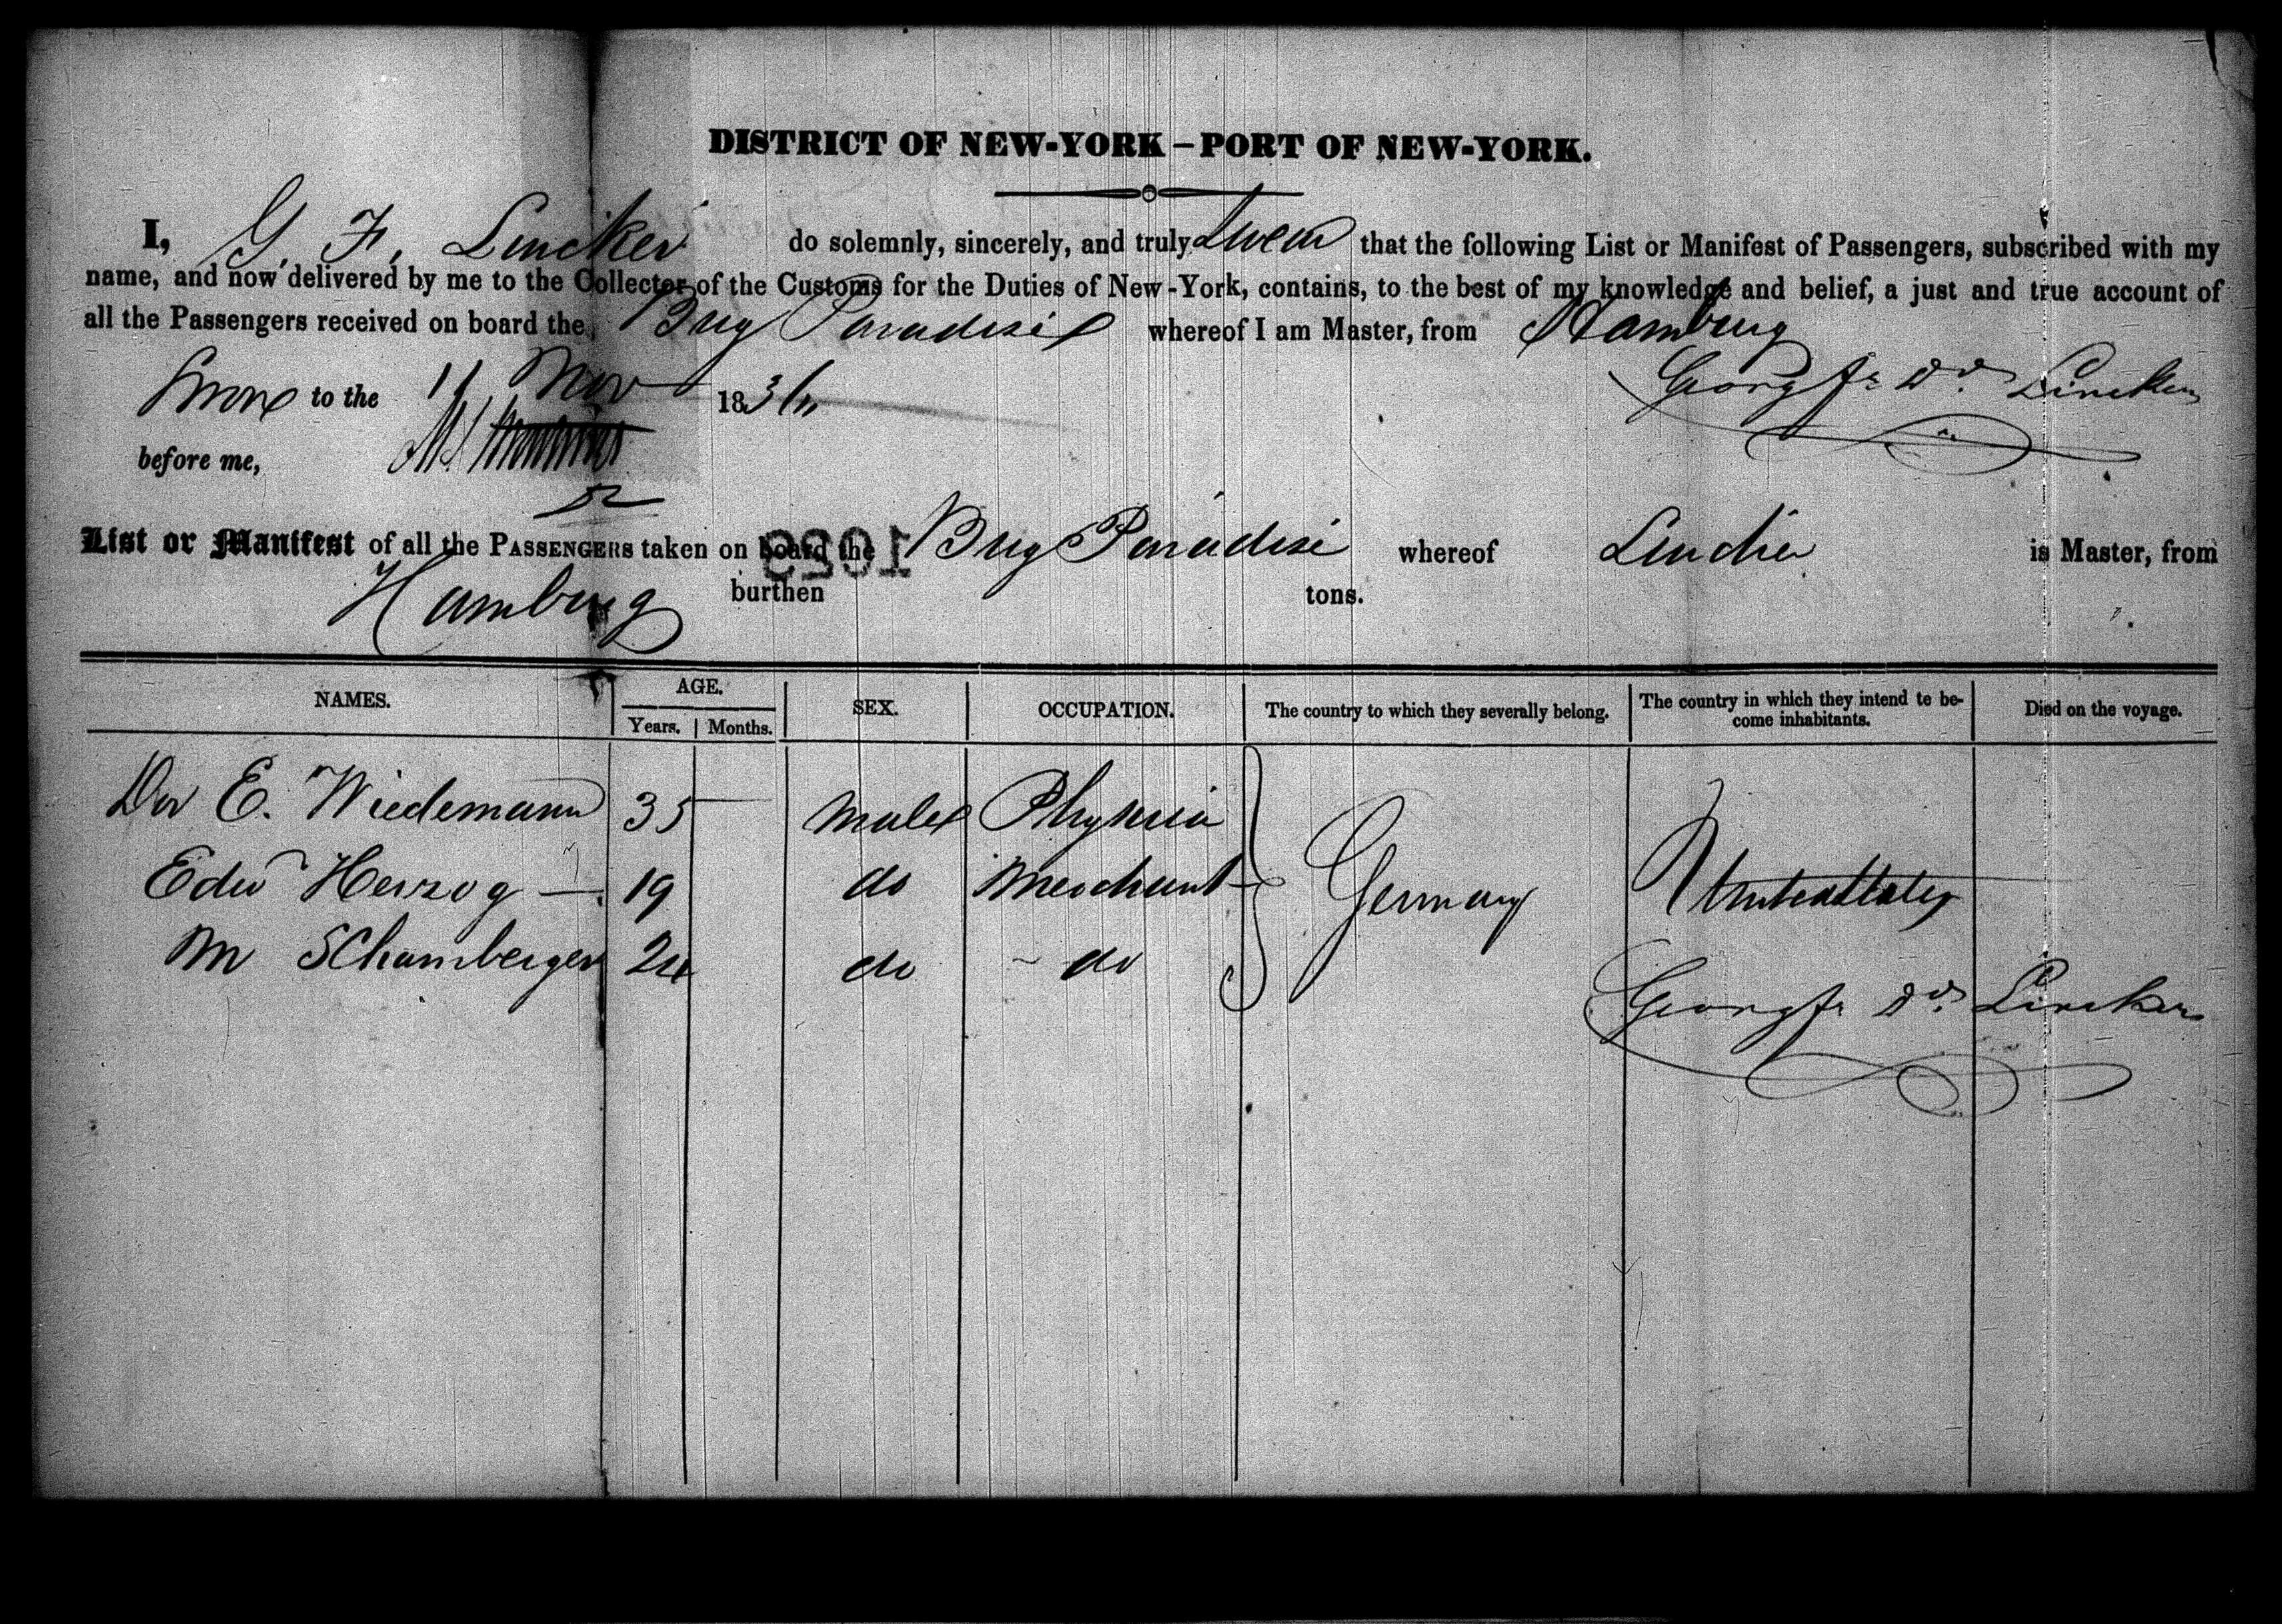 DISTRICT OF NEW-YORK — PORT OF NEW-YORK.
I, G. F. Lincker do solemnly, sincerely, and truly Swear that the following List or Manifest of Passengers, subscribed with my
name, and now delivered by me to the Collector of the Customs for the Duties of New-York, contains, to the best of my knowledge and belief, a just and true account of
all the Passengers received on board the Brig Paradise whereof I am Master, from Hamburg
Sworn to the 11 Nov 183 Georg Fr Lincker
before me,
List or Manifest of all the PASSENGERS taken on board the Brig Paradise whereof is Master, from
1023
Hamburg burthen tons.
NAMES. AGE. SEX. OCCUPATION. The country to which they severally belong. The country in which they intend to be- Died on the voyage.
Years. Months. come inhabitants.
Dor E. Wiedemann 35 male Physicia
Edw Herzog — 19 do Merchant Germany United States
M Schamberger 24 do do
Georg Fr Lincker